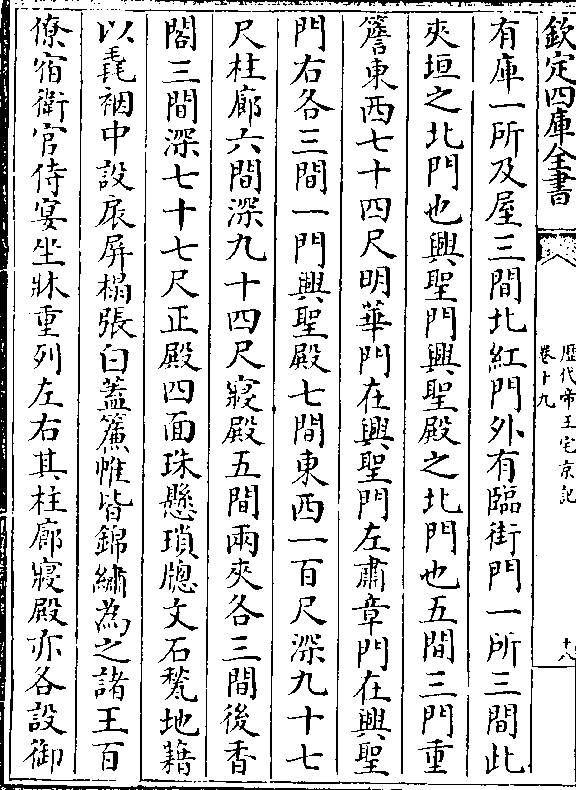 欽定四庫全書
歷代帝王宅京記
卷十九
十八
有庫一所及屋三間北紅門外有臨街門一所三間此
夾垣之北門也興聖門興聖殿之北門也五間三門重
簷東西七十四尺明華門在興聖門左肅章門在興聖
門右各三間一門興聖殿七間東西一百尺深九十七
尺柱廊六間深九十四尺寢殿五間兩夾各三間後香
閣三間深七十七尺正殿四面珠懸瑣牕文石甃地藉
以毳裀中設扆屏榻張白蓋簾帷皆錦繡為之諸王百
僚宿衛官侍宴坐牀重列左右其柱廊寢殿亦各設御